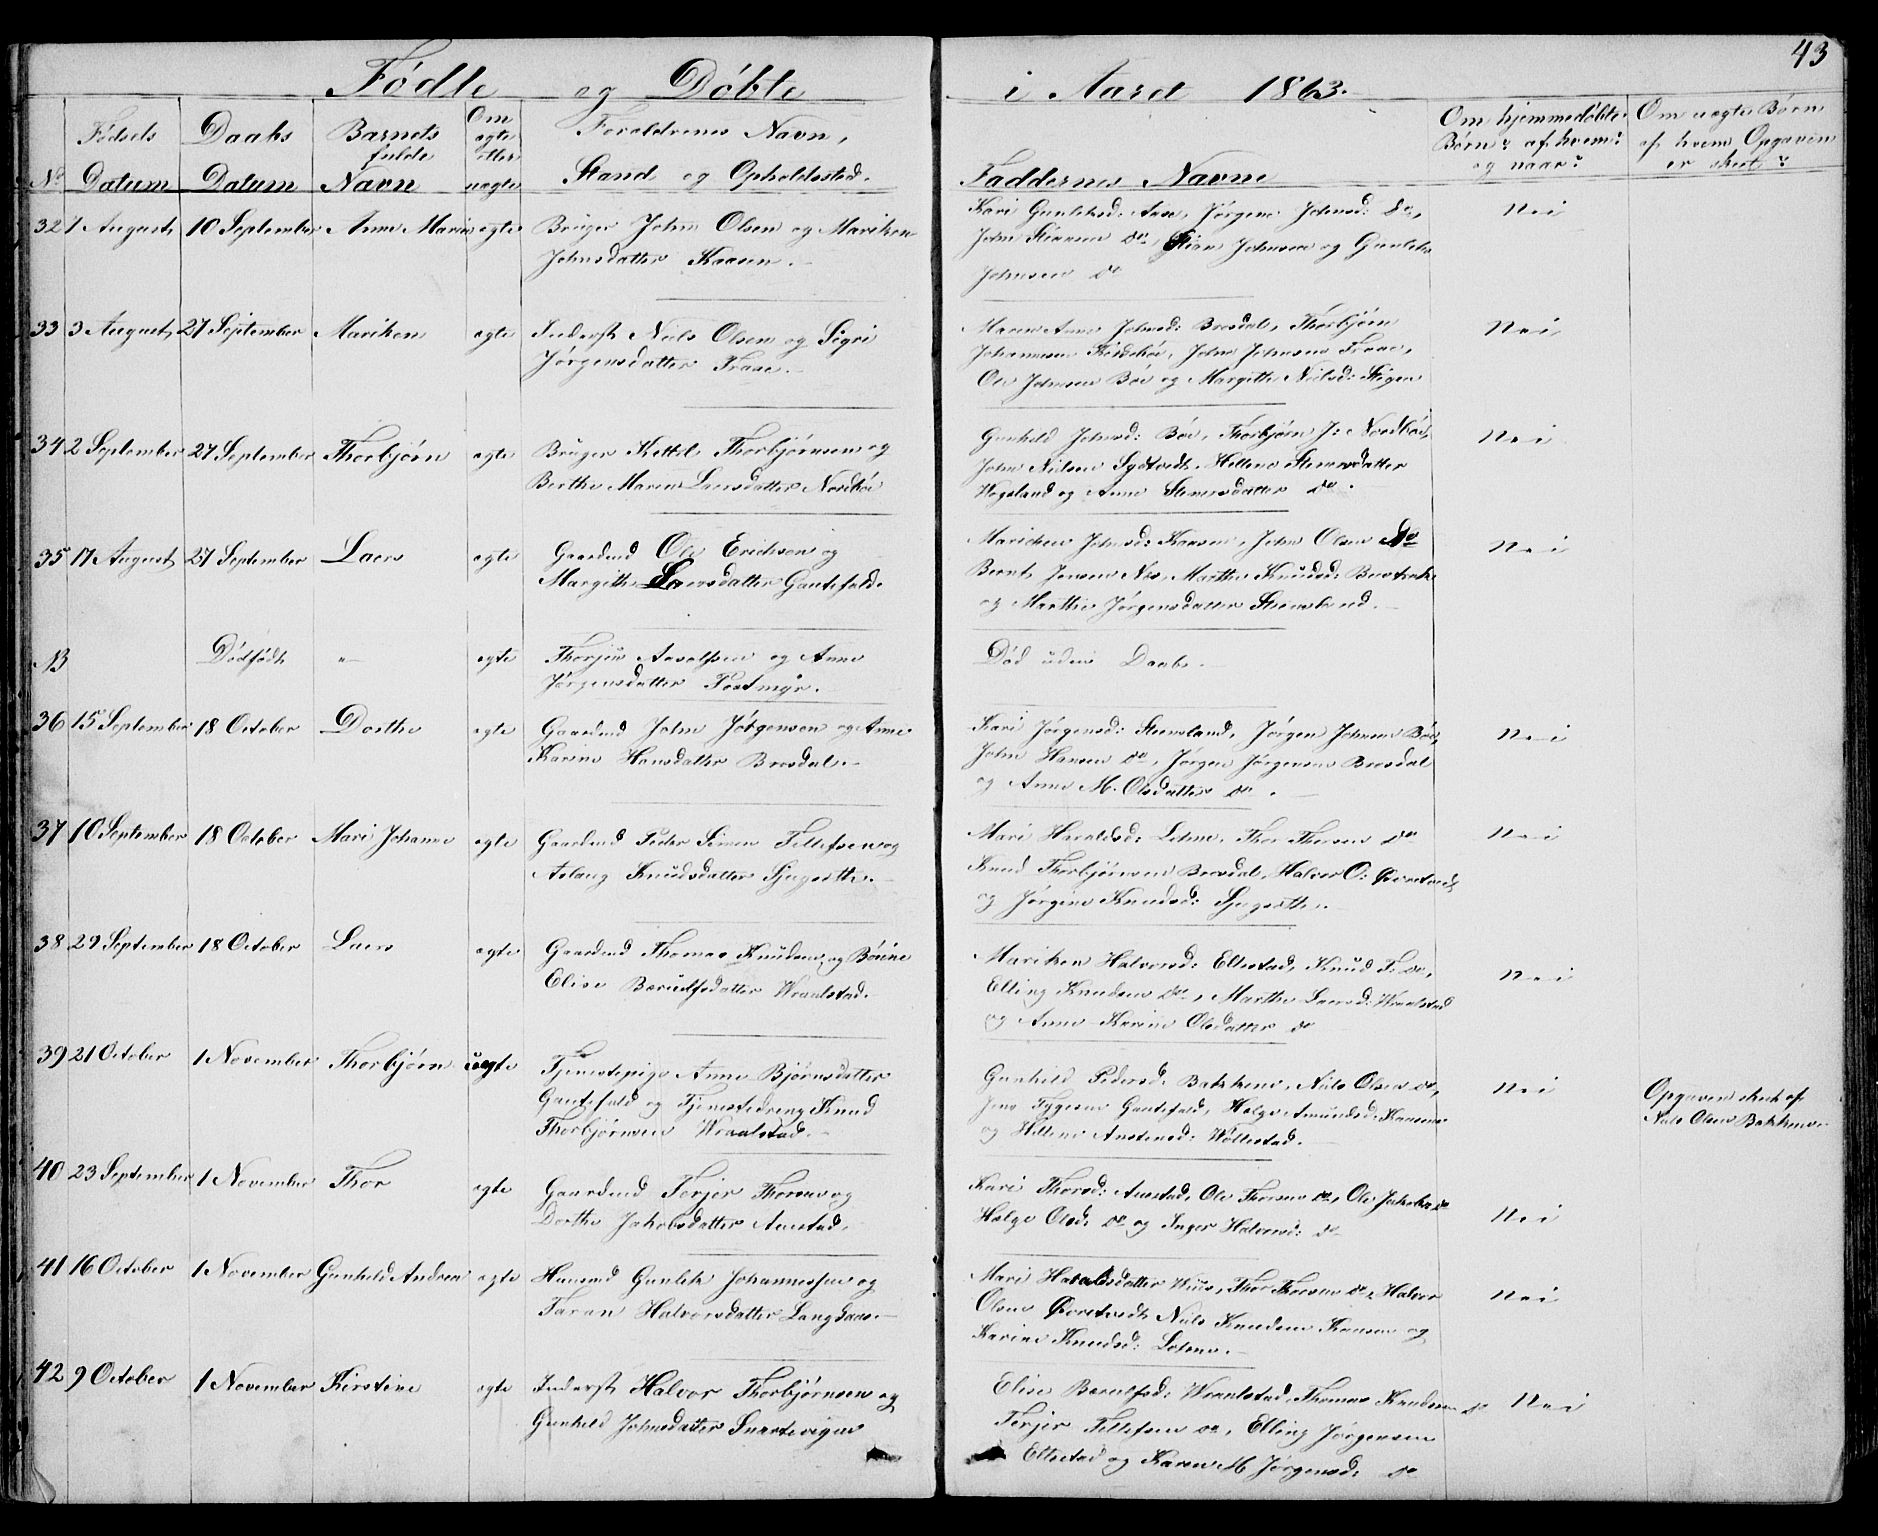 43
Födte og Döbte i Aaret 1863.
No
Födsels Datum
Daabs Datum
Barnets fulde Navn
Om ægte eller uægte
Forældrenes Navn,
Stand og Opholdssted.
Faddernes Navne
Om hjemmedöbte Börn? af hvem? og naar?
Om uægte Börn af hvem Opgaven er skeet?
32 1 August 10 September Anne Maria ægte Bruger John Olsen og Mariken
Johnsdatter Kaasen.
Kari Gunleksd: Aase, Jörgine Johnsd: Do,
John Steansen do, Stian Johnsen og Gunlek
Johnsen do
Nei
33 3 August 27 September Mariken ægte Inderst Niels Olsen og Sigri
Jörgensdatter Traae.
Maren Anne Johnsd: Brosdal, Thorbjörn
Johannesen, John Johnsen Traae,
Ole Johnsen Böe og Margithe Nielsd: Stigen
Nei
34 2 September 27 September Thorbjörn ægte Bruger Kettil Thorbjörnsen og
Berthe Maren Laersdatter Nordböe
Gunhild Johnsd: Böe, Thorbjörn J: Nordböe,
John Nielsen Sydtvedt, Hellene Stenersdatter
Vegsland og Anne Stenersdatter do.
Nei
35 17 August 27 September Laers ægte Gaardmd Ole Erichsen og
Margithe Laersdatter Gautefald.
Mariken Johnsd: Kaasen, John Olsen do
Bernt Jensen Næs, Marthe Knudsd:
og Marthe Jörgensdatter Steensland.
Nei
NB Dödfödt " ægte Thorjus Aavolfsen og Anne
Jörgensdatter Postmyr.
Död uden Daab.
36 15 September 18 October Dorthe ægte Gaardmd John Jörgensen og Anne
Karine Hansdatter Brosdal.
Kari Jörgensd: Steensland, Jörgen Johnsen Böe,
John Hansen do, Jörgen Jörgensen Brosdal
og Anne M. Olsdatter do.
Nei
37 10 September 18 October Mari Johanne ægte Gaardmd Peder Simon Tellefsen og
Aslaug Knudsdatter
Mari Haraldsd: Lohne, Thor Thorsen do
Knud Thorbjörnsen Brosdal, Halvor O: Övretvedt
og Jörgine Knudsd:
Nei
38 29 September 18 October Laers ægte Gaardmd Thomas Knudsen og Börine
Elise Berulfsdatter Wraalstad.
Mariken Halvorsd: Eltestad, Knud T. do,
Elling Knudsen do, Marthe Laersd: Wraalstad
og Anne Karine Olsdatter do
Nei
39 21 October 1 November Thorbjörn uægte Tjenestepige Anne Björnsdatter
Gautefald og Tjenestedreng Knud
Thorbjörnsen Wraalstad.
Gunhild Pedersd: Bakkene, Niels Olsen do,
Jens Tygesen Gautefald, Helge Amundsd: Kaasene
og Hellene Anstensd: Wöllestad.
Nei
Opgaven skeet af
Niels Olsen Bakkene
40 23 September 1 November Thor ægte Gaardmd Terjer Thorsen og
Dorthe Jakobsdatter Aanstad.
Kari Thorsd: Aanstad, Ole Thorsen do, Ole Jakobs do
Helge Olsd: do og Inger Halvorsd: do
Nei
41 16 October 1 November Gunhild Andrea ægte Huusmd Gunlek Johannessen og
Taran Halvorsdatter Langdaas.
Mari Haraldsdatter, Thor Thorsen do, Halvor
Olsen Övretvedt, Niels Knudsen Kaasen og
Karine Knudsd: Lohne.
Nei
42 9 October 1 November Kirstine ægte Inderst Halvor Thorbjörnsen og
Gunhild Johnsdatter Snartevigen
Elise Berulfsd: Wraalstad, Thomas Knudsen do
Terjer Tellefsen do, Elling Jörgensen
Eltestad og Karen M. Jörgensd: do
Nei